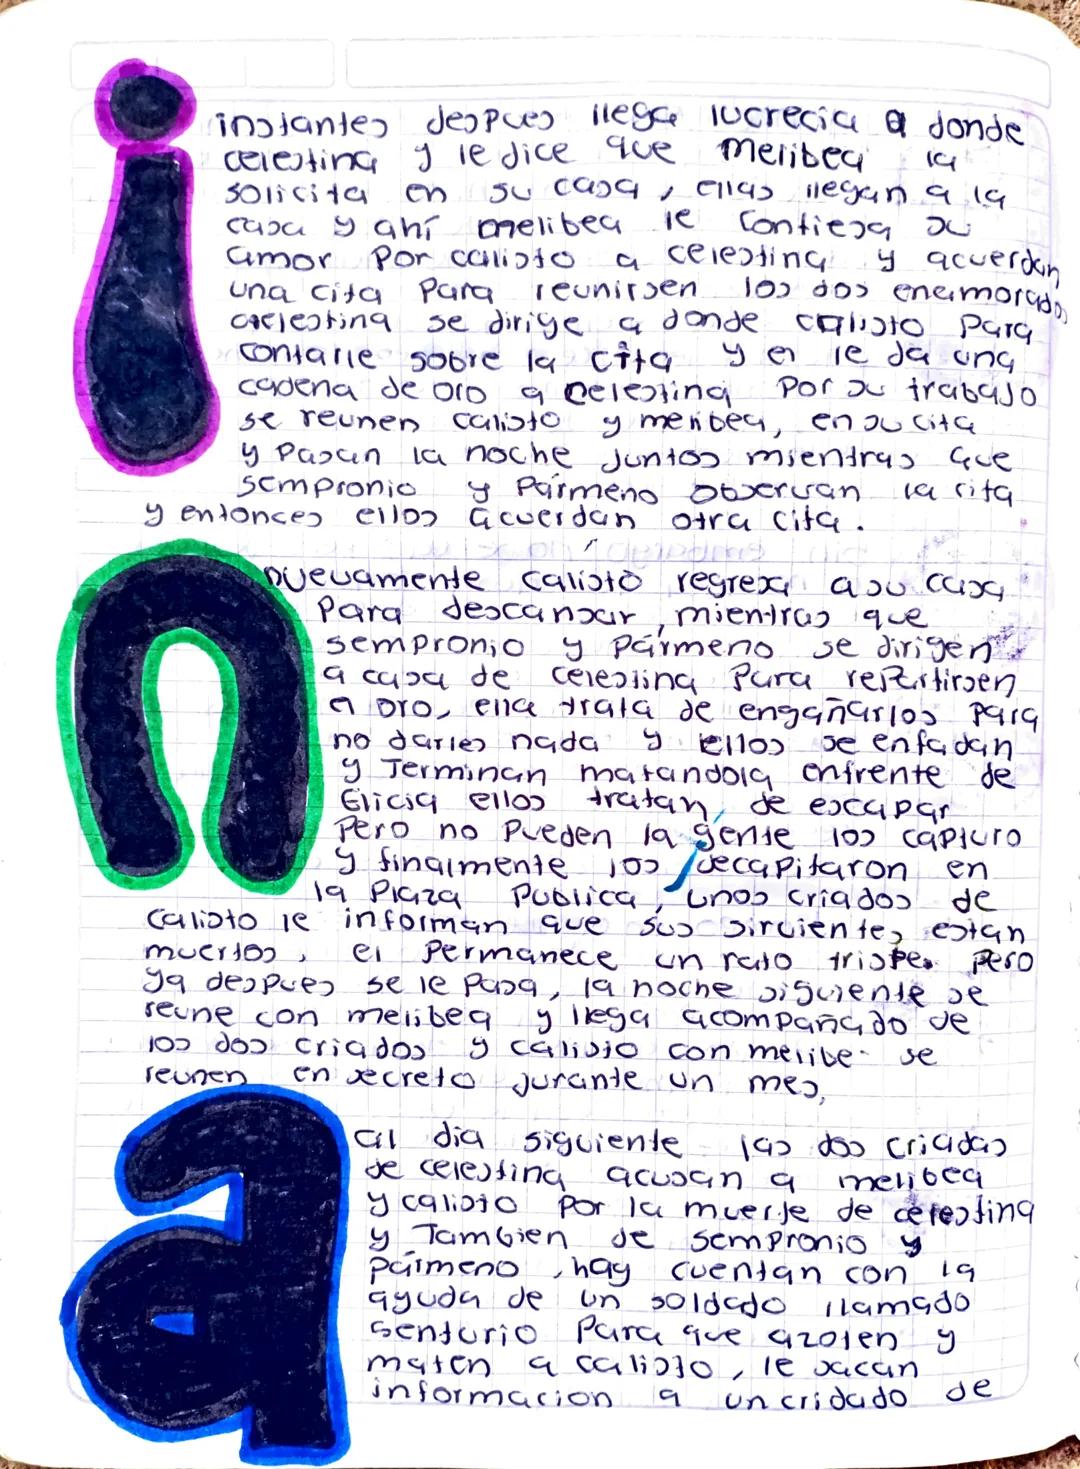 i
instantes despues llega lucrecia a donde
celestina y le dice que melibea la
solicita en su casa, ellas llegan a la
casa y ahí melibea le confiesa su
amor por calisto a celestina y acuerdan
una cita para reunirsen los dos enamorados
celestina se dirige a donde calisto para
contarle sobre la cita y el le da una
cadena de oro a celestina por su trabajo
se reunen calisto y melibea, en su cita
y pasan la noche juntos mientras que
sempronio y Pármeno observan la cita
y entonces ellos acuerdan otra cita.
n
nuevamente calisto regresa a su casa
para descansar, mientras que
sempronio y pármeno se dirigen
a casa de celestina para repartirsen
el oro, ella trata de engañarlos para
no darles nada y ellos se enfadan
y Terminan matandola enfrente de
Elicia ellos tratan de escapar
pero no pueden la gente los capturo
y finalmente los decapitaron en
la plaza publica, unos criados de
calisto le informan que sus sirvientes estan
muertos, el permanece un rato triste. pero
ya despues se le pasa, la noche siguiente se
reune con melibea y llega acompañado de
los dos criados y calisto con melibe- se
reunen en secreto durante un mes,
a
al dia siguiente las dos criadas
de celestina acusan a melibea
y calisto por la muerte de celestina
y Tambien de sempronio y
pármeno, hay cuentan con la
ayuda de un soldado llamado
senturio para que azoten y
maten a calisto, le sacan
informacion a un cridado de